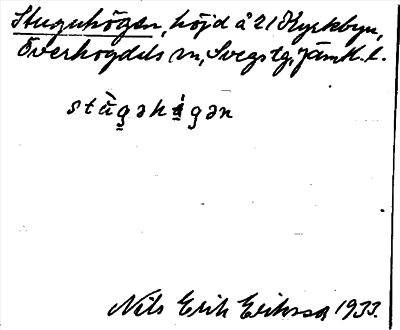 Stuguhögen, höjd å 21 Kyrkbyn,
Överhogdals sn, Svegs tg, Jämtl. l.
stù̀gəhi̱gən
Nils Erik Eriksson 1933.